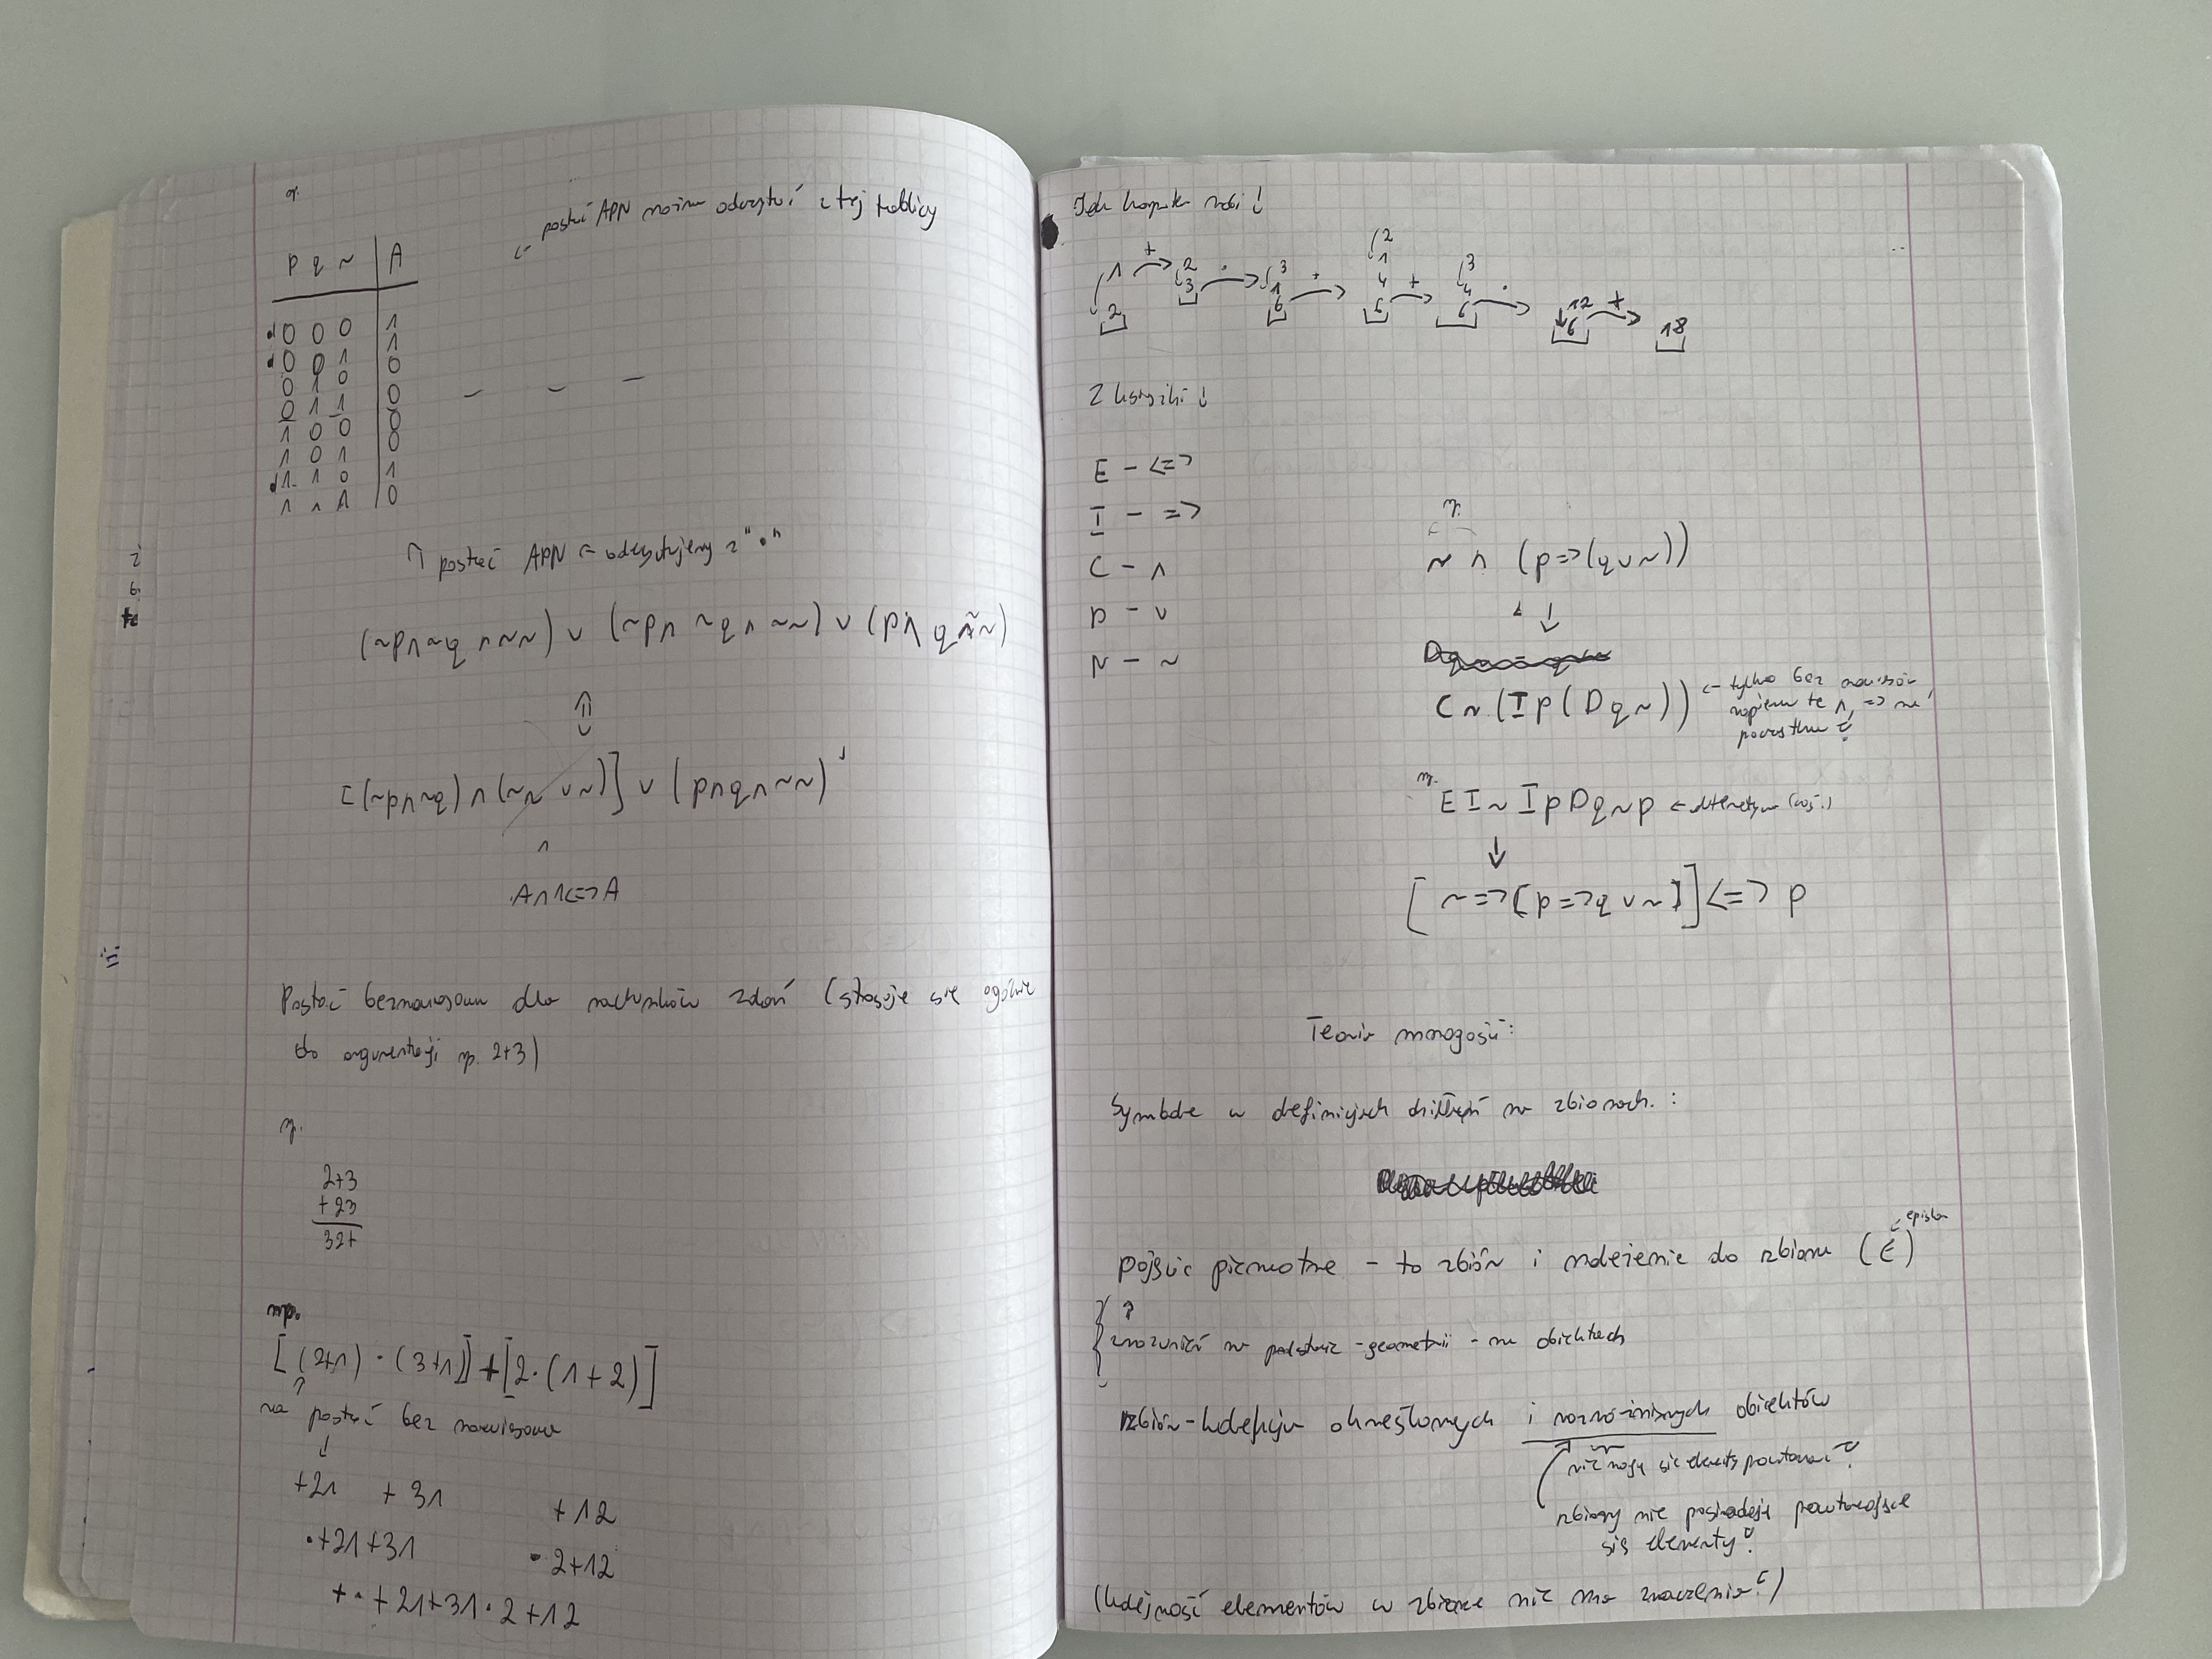 np.
← postać APN można odczytać z tej tablicy
p q r | A
0 0 0 | 1
0 0 1 | 1
0 1 0 | 0
0 1 1 | 0
1 0 0 | 0
1 0 1 | 0
1 1 0 | 1
1 1 1 | 0
↑ postać APN ← odczytujemy z "•"
(~p∧~q∧~r) ∨ (~p∧~q∧~~) ∨ (p∧q∧~r)
⇕
[(~p∧~q)∧(~r∨r)] ∨ (p∧q∧~r)
1
A∧1<=>A
Postać beznawiasowa dla rachunków zdań (stosuje się ogólnie
do argumentacji np. 2+3)
np.
2+3
+23
32+
np.
[(2+1)·(3+1)]+[2·(1+2)]
na postać bez nawiasowa
↓
+21 +31 +12
·+21+31 ·2+12
+·+21+31·2+12
Jak komputer robi!
1 + 2 · 3 + 2 + 3 · 12 + 18
2 3 1 1 4 6
6 4 6
6
Z książki!
E - <=>
I - =>
C - ∧
D - ∨
N - ~
np.
r ∧ (p=>(q∨r))
↓
C r (I p (D q r)) ← tylko bez nawiasów
np.
E I r I p D q r p ←
↓
[r=>[p=>q∨r]]<=> p
Teoria mnogości:
Symbole w definicjach działań na zbiorach.:
pojęcie pierwotne - to zbiór i należenie do zbioru (∈)
- geometrii - na obiektach
zbiór - kolekcja określonych i rozróżnialnych obiektów
nie mogą się elementy powtarzać!
zbiory nie posiadają powtarzające
się elementy!
(kolejność elementów w zbiorze nie ma znaczenia!)